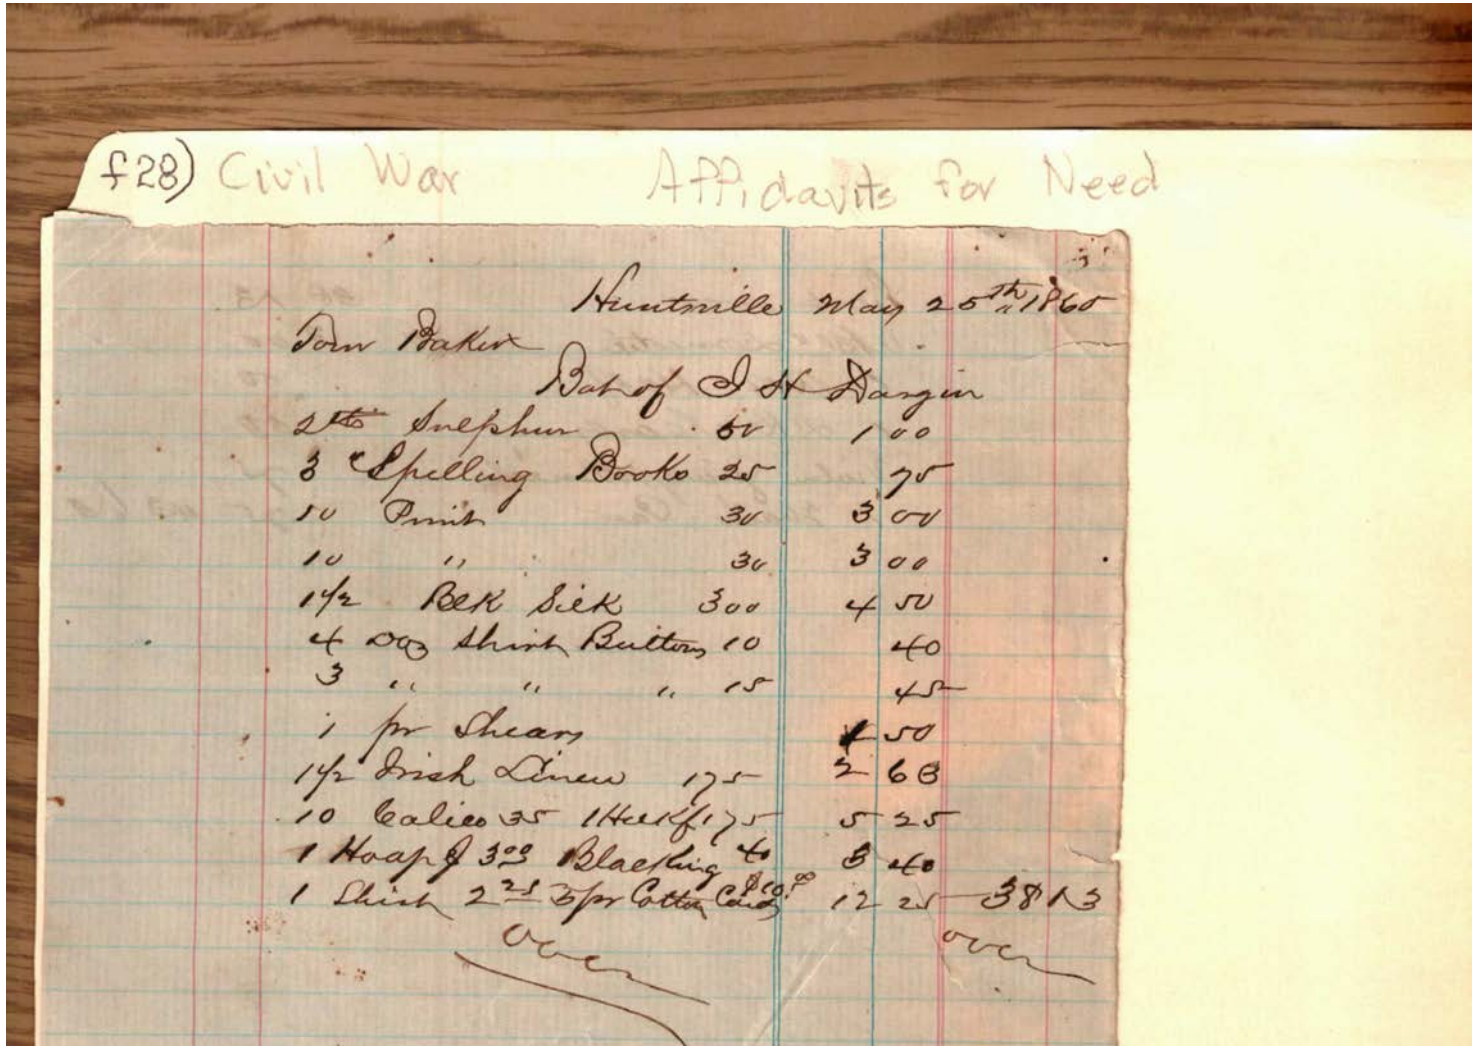 f28) Civil War Affidavits for Need
Huntsville May 25th 1865
Tom Baker
Bot of J H Dargin
2 lbs Sulphur 50 1 00
3 Spelling Books 25 75
10 Print 30 3 00
10 " 30 3 00
1 1/2 Blk Silk 300 4 50
4 Doz Shirt Buttons 10 40
3 " " " 15 45
1 pr Shears 1 50
1 1/2 Irish Linen 175 2 63
10 Calico 35 1 Hdkf 175 5 25
1 Hoap 3 00 Blacking 40 3 40
1 Shirt 2 25 pr Cotton Cards $10 00 12 25 3813
over over